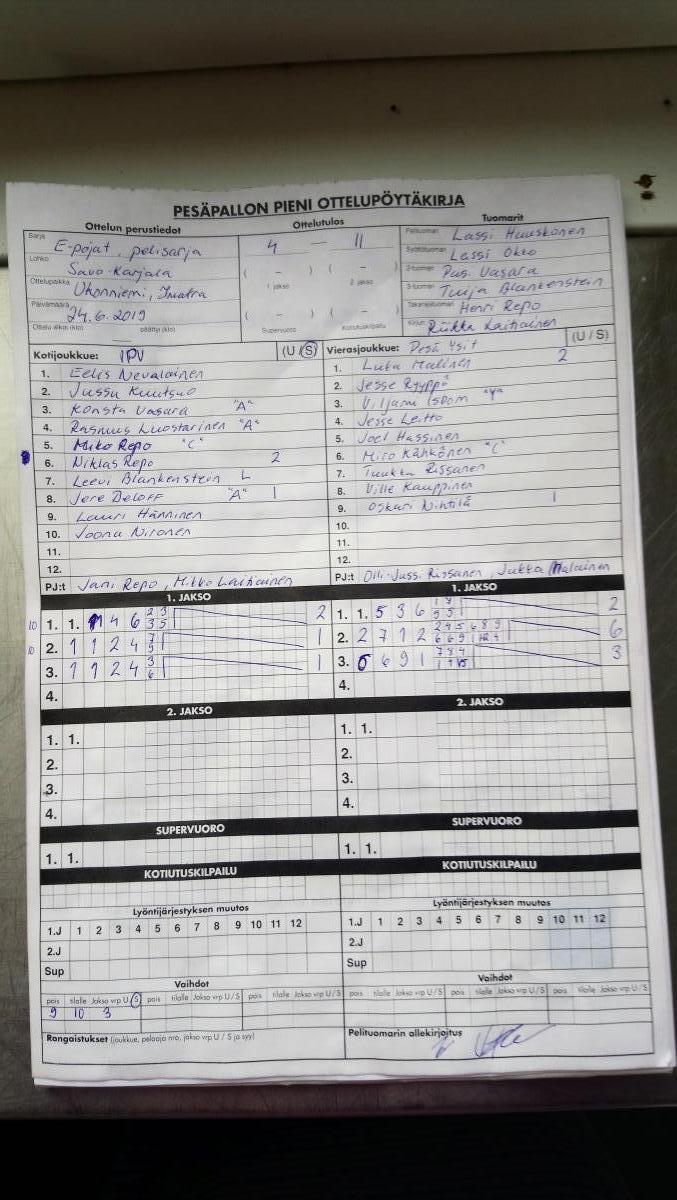 PESÄPALLON PIENI OTTELUPÖYTÄKIRJA
Ottelun perustiedot
Sarja E-pojat, pelisarja
Lohko Savo-Karjala
Ottelupaikka Ukonniemi, Imatra
Päivämäärä 24.6.2019
Ottelu alkoi (klo) päättyi (klo)
Ottelutulos
4 — 11
( – ) ( – )
1. jakso 2. jakso
( – ) ( – )
Supervuoro Kotiutuskilpailu
Tuomarit
Pelituomari Lassi Huuskonen
Syöttötuomari Lassi Okko
2-tuomari Pus. Vasara
3-tuomari Tuija Blankenstein
Takarajatuomari Henri Repo
Kirjuri Riikka Laitiainen
Kotijoukkue: IPV (U / S)
1. Eelis Nevalainen
2. Jussu Kuutsuo
3. Konsta Vasara "A"
4. Rasmus Luostarinen "A"
5. Miko Repo "C"
6. Niklas Repo 2
7. Leevi Blankenstein L
8. Jere Deloff "A" 1
9. Lauri Hänninen
10. Joona Nironen
11.
12.
PJ:t Jani Repo, Mitko Laitiainen
Vierasjoukkue: Pesä Ysit (U / S)
1. Luka Malinen 2
2. Jesse Ryyppö
3. Viljami "V"
4. Jesse Leitto
5. Joel Hassinen
6. Miro Kähkönen "C"
7. Tuukka Rissanen
8. Ville Kauppinen
9. Oskari Nihtilä 1
10.
11.
12.
PJ:t Olli-Jussi Rissanen, Jukka Malainen
1. JAKSO
10 1. 1. 1 4 6 2 3 3 5 2
10 2. 1 1 2 4 7 9 1
3. 1 1 2 4 3 6 1
4.
1. JAKSO
1. 1. 5 3 6 1 7 9 5 2
2. 2 7 1 2 6
3. 6 6 9 1 7 8 4 3
4.
2. JAKSO
1. 1.
2.
3.
4.
2. JAKSO
1. 1.
2.
3.
4.
SUPERVUORO
1. 1.
SUPERVUORO
1. 1.
KOTIUTUSKILPAILU
KOTIUTUSKILPAILU
Lyöntijärjestyksen muutos
1.J 1 2 3 4 5 6 7 8 9 10 11 12
2.J
Sup
Lyöntijärjestyksen muutos
1.J 1 2 3 4 5 6 7 8 9 10 11 12
2.J
Sup
Vaihdot
pois tilalle Jakso vrp U / S pois tilalle Jakso vrp U / S pois tilalle Jakso vrp U / S
9 10 3
Vaihdot
pois tilalle Jakso vrp U / S pois tilalle Jakso vrp U / S pois tilalle Jakso vrp U / S
Rangaistukset (joukkue, pelaaja nro, jakso vrp U / S ja syy)
Pelituomarin allekirjoitus